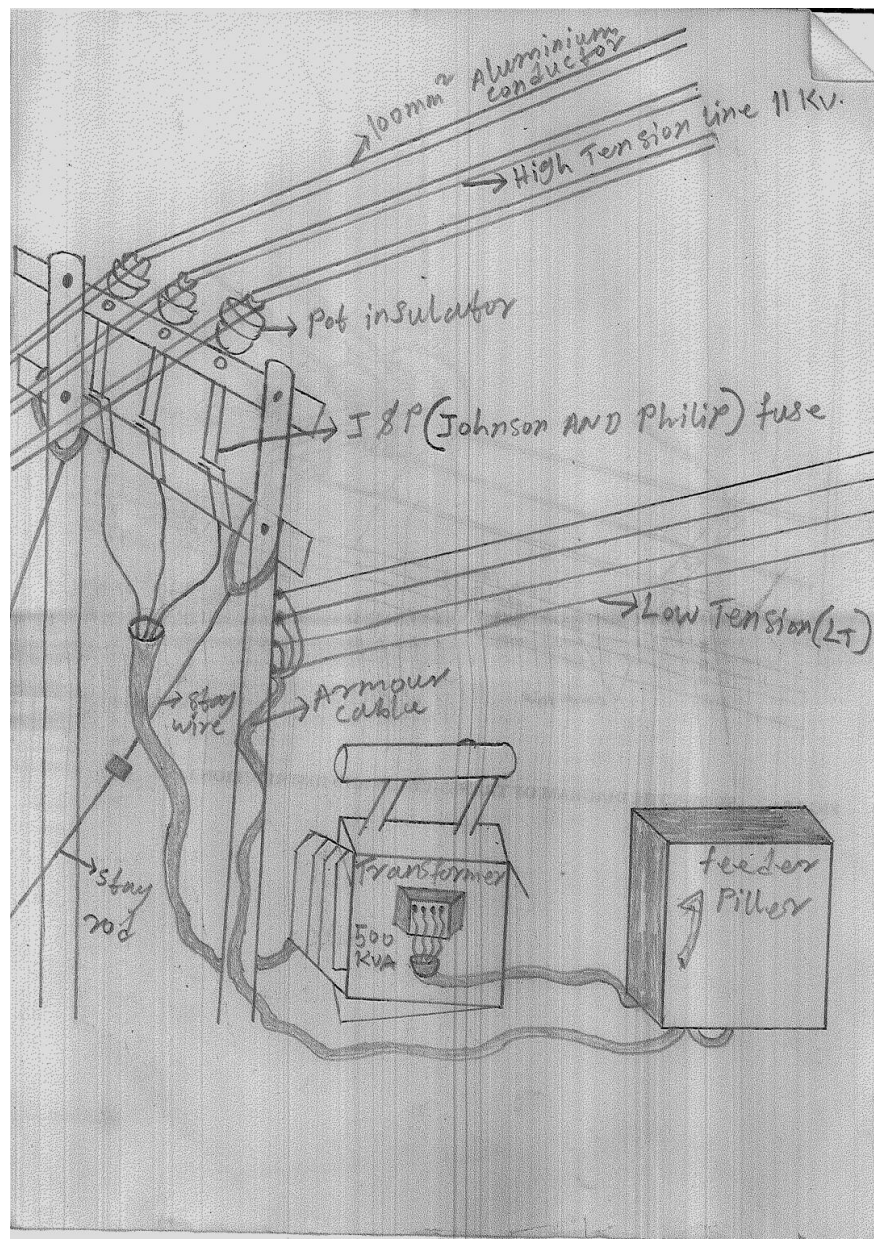 100mm² Aluminium
conductor
High Tension line 11 KV.
Pot insulator
J & P (Johnson AND Philip) fuse
Low Tension (LT)
stay
wire
Armour
cable
stay
rod
Transformer
500
KVA
feeder
Piller